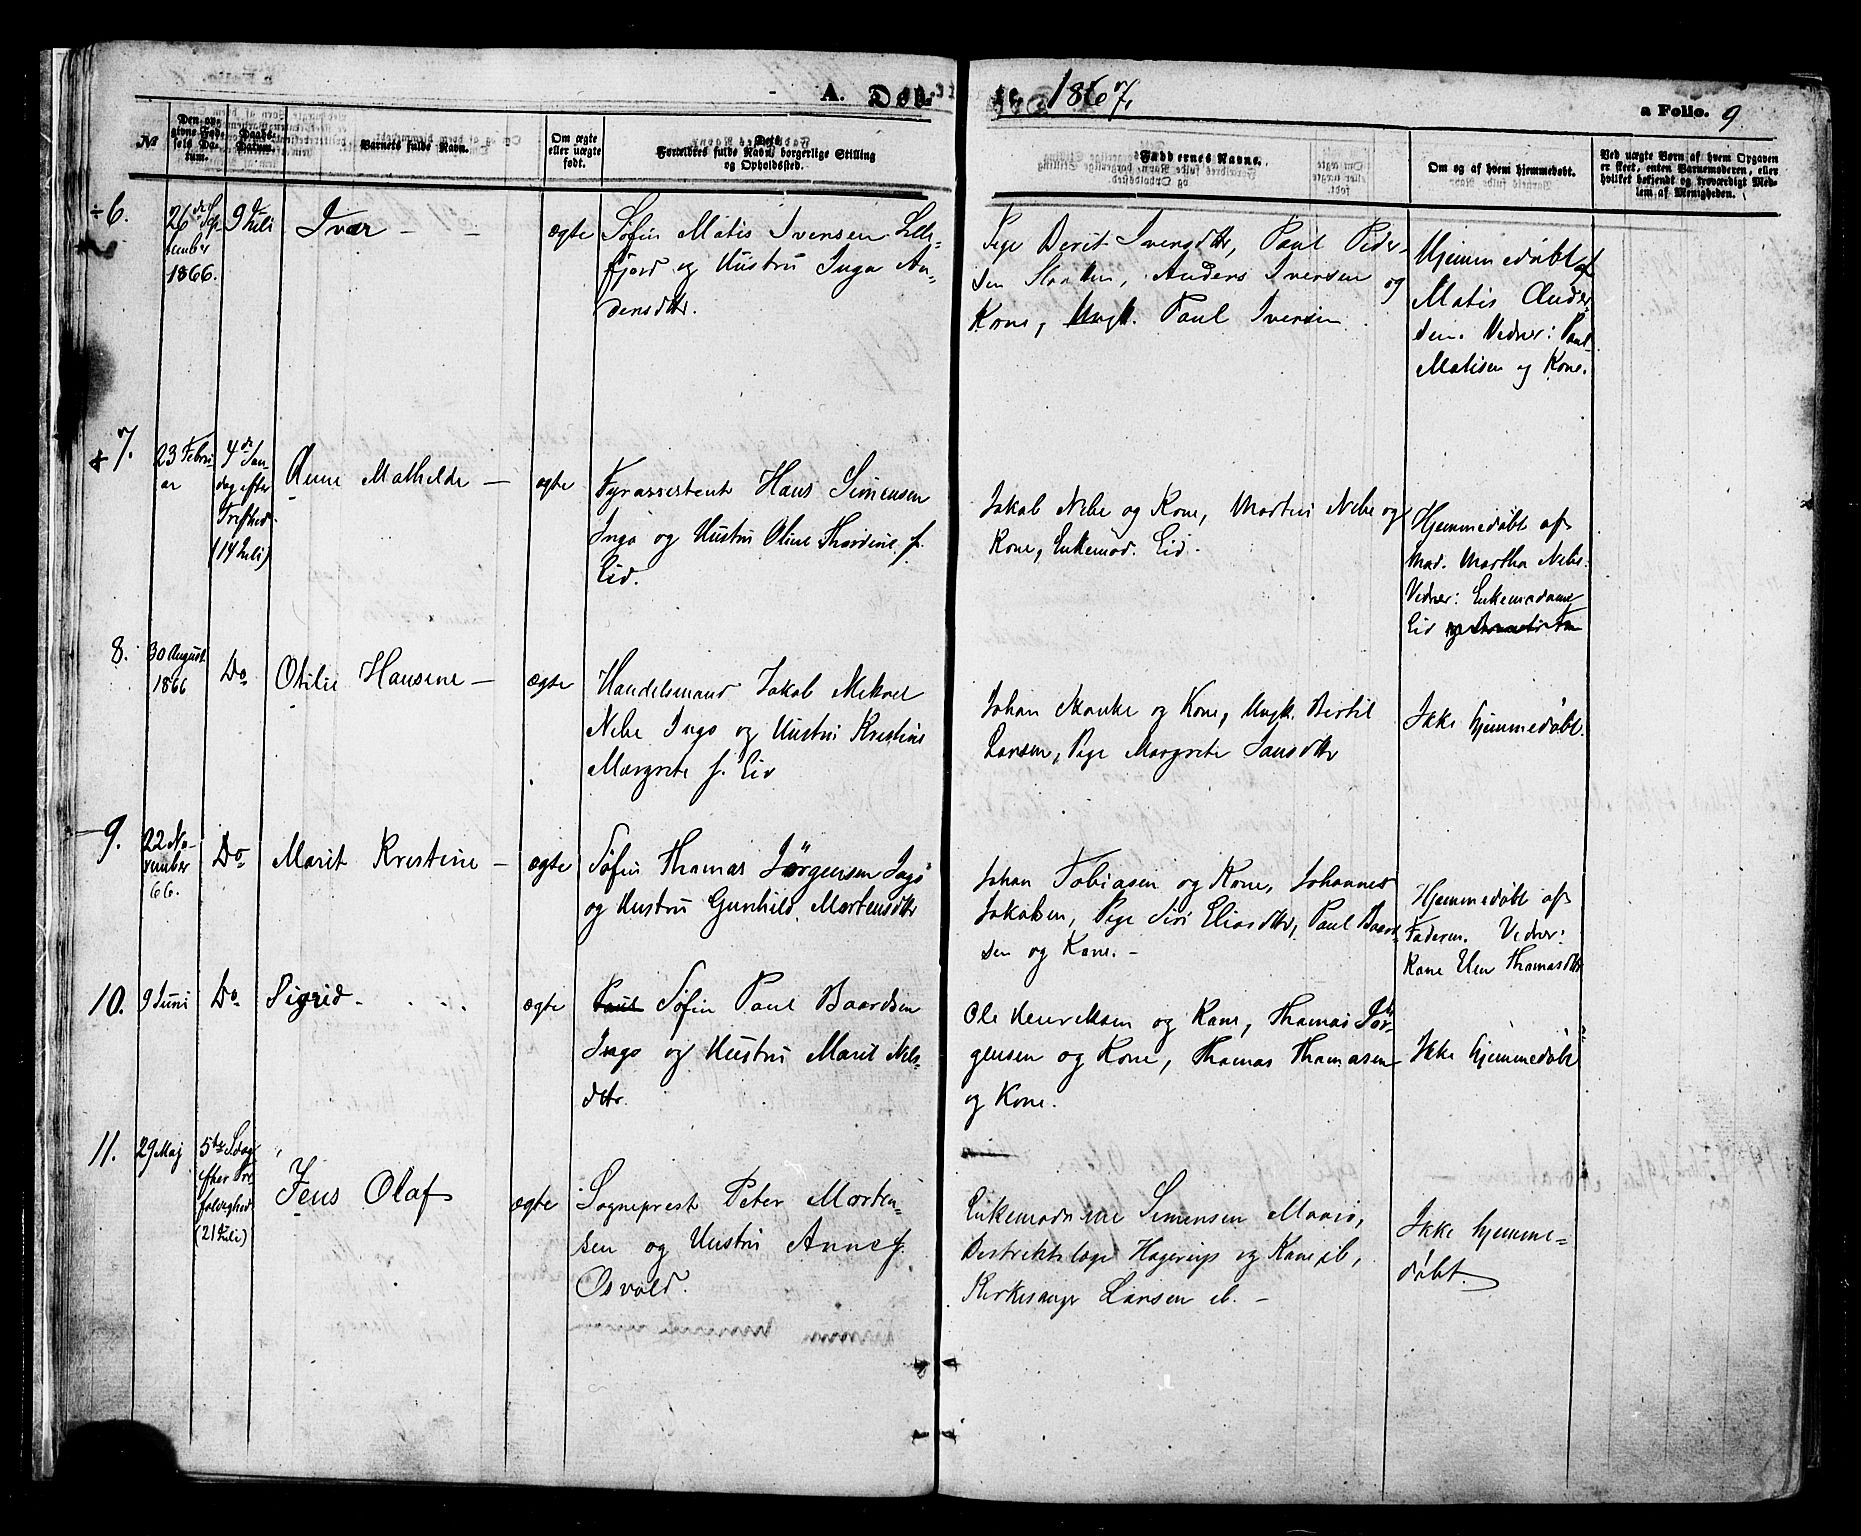 A. Døb te 1867. a Folio. 9
№
Den op-
givne Fød-
sels Da-
tum.
Daabs-
Datum.
Barnets fulde Navn.
Om ægte
eller uægte
født.
Forældres fulde Navn, borgerlige Stilling
og Opholdssted.
Faddernes Navne.
Om og af hvem hjemmedøbt.
Ved uægte Børn af hvem Opgaven
er skeet, enten Barnemoderen, eller
hvilket bekjendt og troværdigt Med-
lem af Menigheden.
6.
26de Sep
tember
1866.
9 Juli
Ivar
ægte
Søfin Matis Ivensen Lille-
fjord og Hustru Inga An-
densdtr.
Pige Berit Iversdtr, Paul Peder-
sen, Anders Iversen og
Kone, Ungk. Paul Iversen.
Hjemmedøbt af
Matis Ander-
sen. Vidner: Paul
Matisen og Kone.
7.
23 Febru
ar
4de Søn
dag efter
Trefhed.
(14 Juli)
Anne Mathilde
ægte
Fyrassistent Hans Simensen
Ingø og Hustru Oline Thordine f.
Eid.
Jakob Nebe og Kone, Martin Nebe og
Kone, Enkemad. Eid.
Hjemmedøbt af
Mad. Martha Nebe.
Vidner: Enkemadame
Eid og
8.
30 August
1866
Do
Otilie Hansine
ægte
Handelsmand Jakob Mikael
Nebe Ingø og Hustru Kristine
Margrete f. Eid
Johan Manke og Kone, Ungk. Bertil
Larsen, Pige Margrete Jansdtr
Ikke hjemmedøbt.
9.
22 No-
vember
66.
Do
Marit Kristine
ægte
Søfin Thomas Jørgensen Ingø
og Hustru Gunhild Mortensdtr
Johan Tobiasen og Kone, Johannes
Jakobsen, Pige Siri Eliasdtr, Paul Baard-
sen og Kone.
Hjemmedøbt af
Faderen. Vidner:
Kone Elen Thomasdtr
10.
9 Juni
Do
Sigrid
ægte
Paul Søfin Paul Baardsen
Ingø og Hustru Marit Nils-
dtr.
Ole Henriksen og Kone, Thomas Jør-
gensen og Kone, Thomas Thomasen
og Kone.
Ikke hjemmedøbt
11.
29 Maj
5te Sdag
efter Tre
foldighed
(21 Juli)
Jens Olaf
ægte
Sogneprest Peter Morten-
sen og Hustru Anne f.
Osvold.
Enkemadame Simensen Maasø,
Destriktslæge Hagerup og Kone ib,
Kirkesanger Larsen ib.
Ikke hjemme-
døbt.